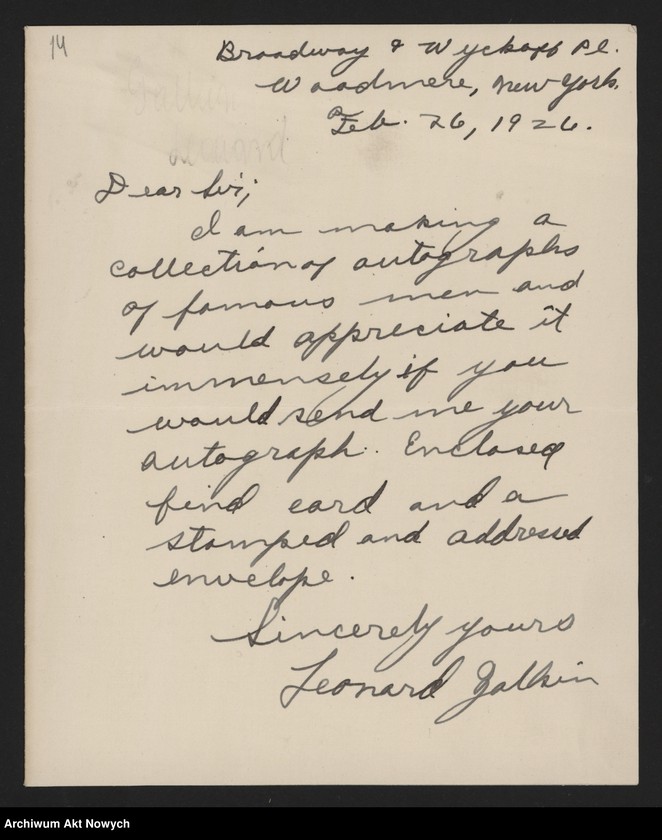 14
Broadway & Wyckoff Pl.
Woodmere, New York.
Feb. 26, 1926.
Dear Sir;
I am making a
collection of autographs
of famous men and
would appreciate it
immensely if you
would send me your
autograph. Enclosed
find card and a
stamped and addressed
envelope.
Sincerely yours
Leonard Galkin
Archiwum Akt Nowych